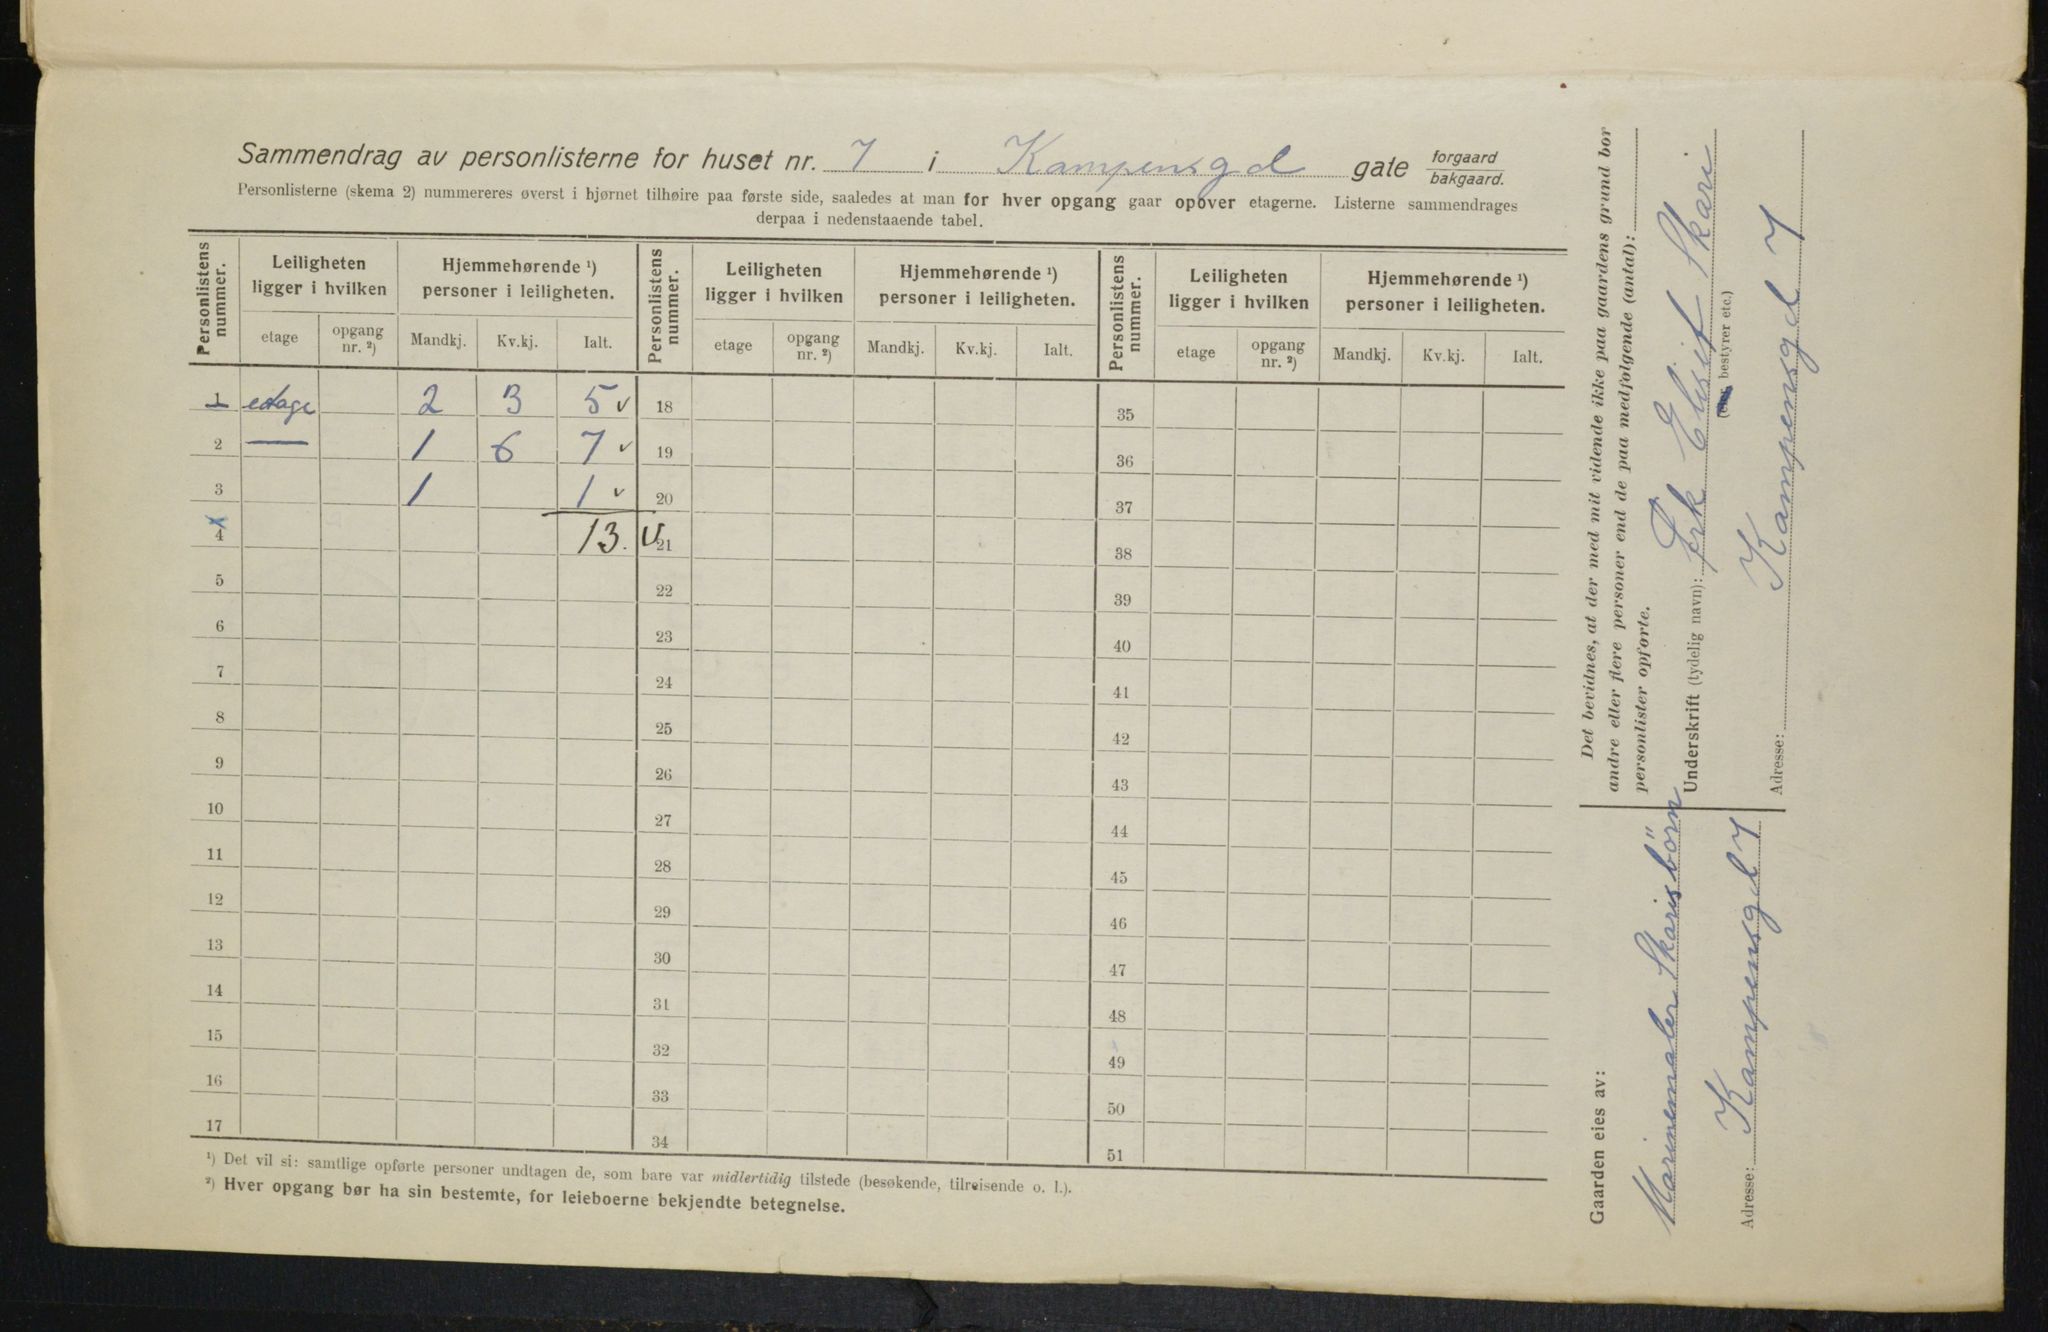 Sammendrag av personlisterne for huset nr. 7 i Kampensgd gate forgaard bakgaard.
Personlisterne (skema 2) nummereres øverst i hjørnet tilhøire paa første side, saaledes at man for hver opgang gaar opover etagerne. Listerne sammendrages
derpaa i nedenstaaende tabel.
Personlistens nummer. Leiligheten ligger i hvilken Hjemmehørende ¹) personer i leiligheten. Personlistens nummer. Leiligheten ligger i hvilken Hjemmehørende ¹) personer i leiligheten. Personlistens nummer. Leiligheten ligger i hvilken Hjemmehørende ¹) personer i leiligheten.
etage opgang nr. ²) Mandkj. Kv.kj. Ialt. etage opgang nr. ²) Mandkj. Kv.kj. Ialt. etage opgang nr. ²) Mandkj. Kv.kj. Ialt.
1 etage 2 3 5 v 18 35
2 — 1 6 7 v 19 36
3 1 1 v 20 37
4 13. v 21 38
5 22 39
6 23 40
7 24 41
8 25 42
9 26 43
10 27 44
11 28 45
12 29 46
13 30 47
14 31 48
15 32 49
16 33 50
17 34 51
¹) Det vil si: samtlige opførte personer undtagen de, som bare var midlertidig tilstede (besøkende, tilreisende o. l.).
²) Hver opgang bør ha sin bestemte, for leieboerne bekjendte betegnelse.
Det bevidnes, at der med mit vidende ikke paa gaardens grund bor
andre eller flere personer end de paa medfølgende (antal):
personlister opførte.
Underskrift (tydelig navn): Frk Elisif Skari
(eier, bestyrer etc.)
Adresse: Kampensgd 7
Gaarden eies av:
Marinemaler Skarisbörn
Adresse: Kampensgd 7